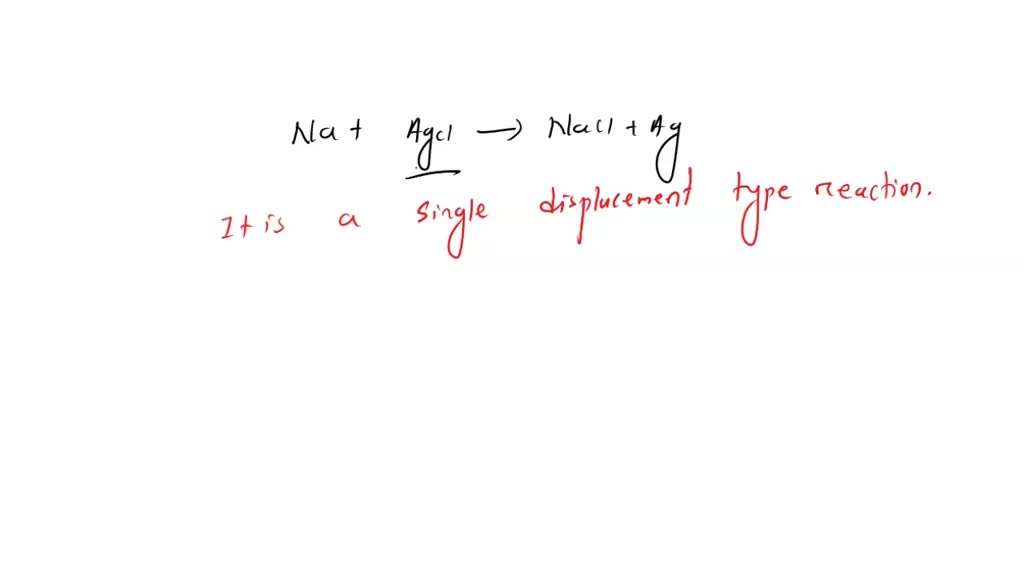 Na + Agcl → Nacl + Ag
It is a single displacement type reaction.